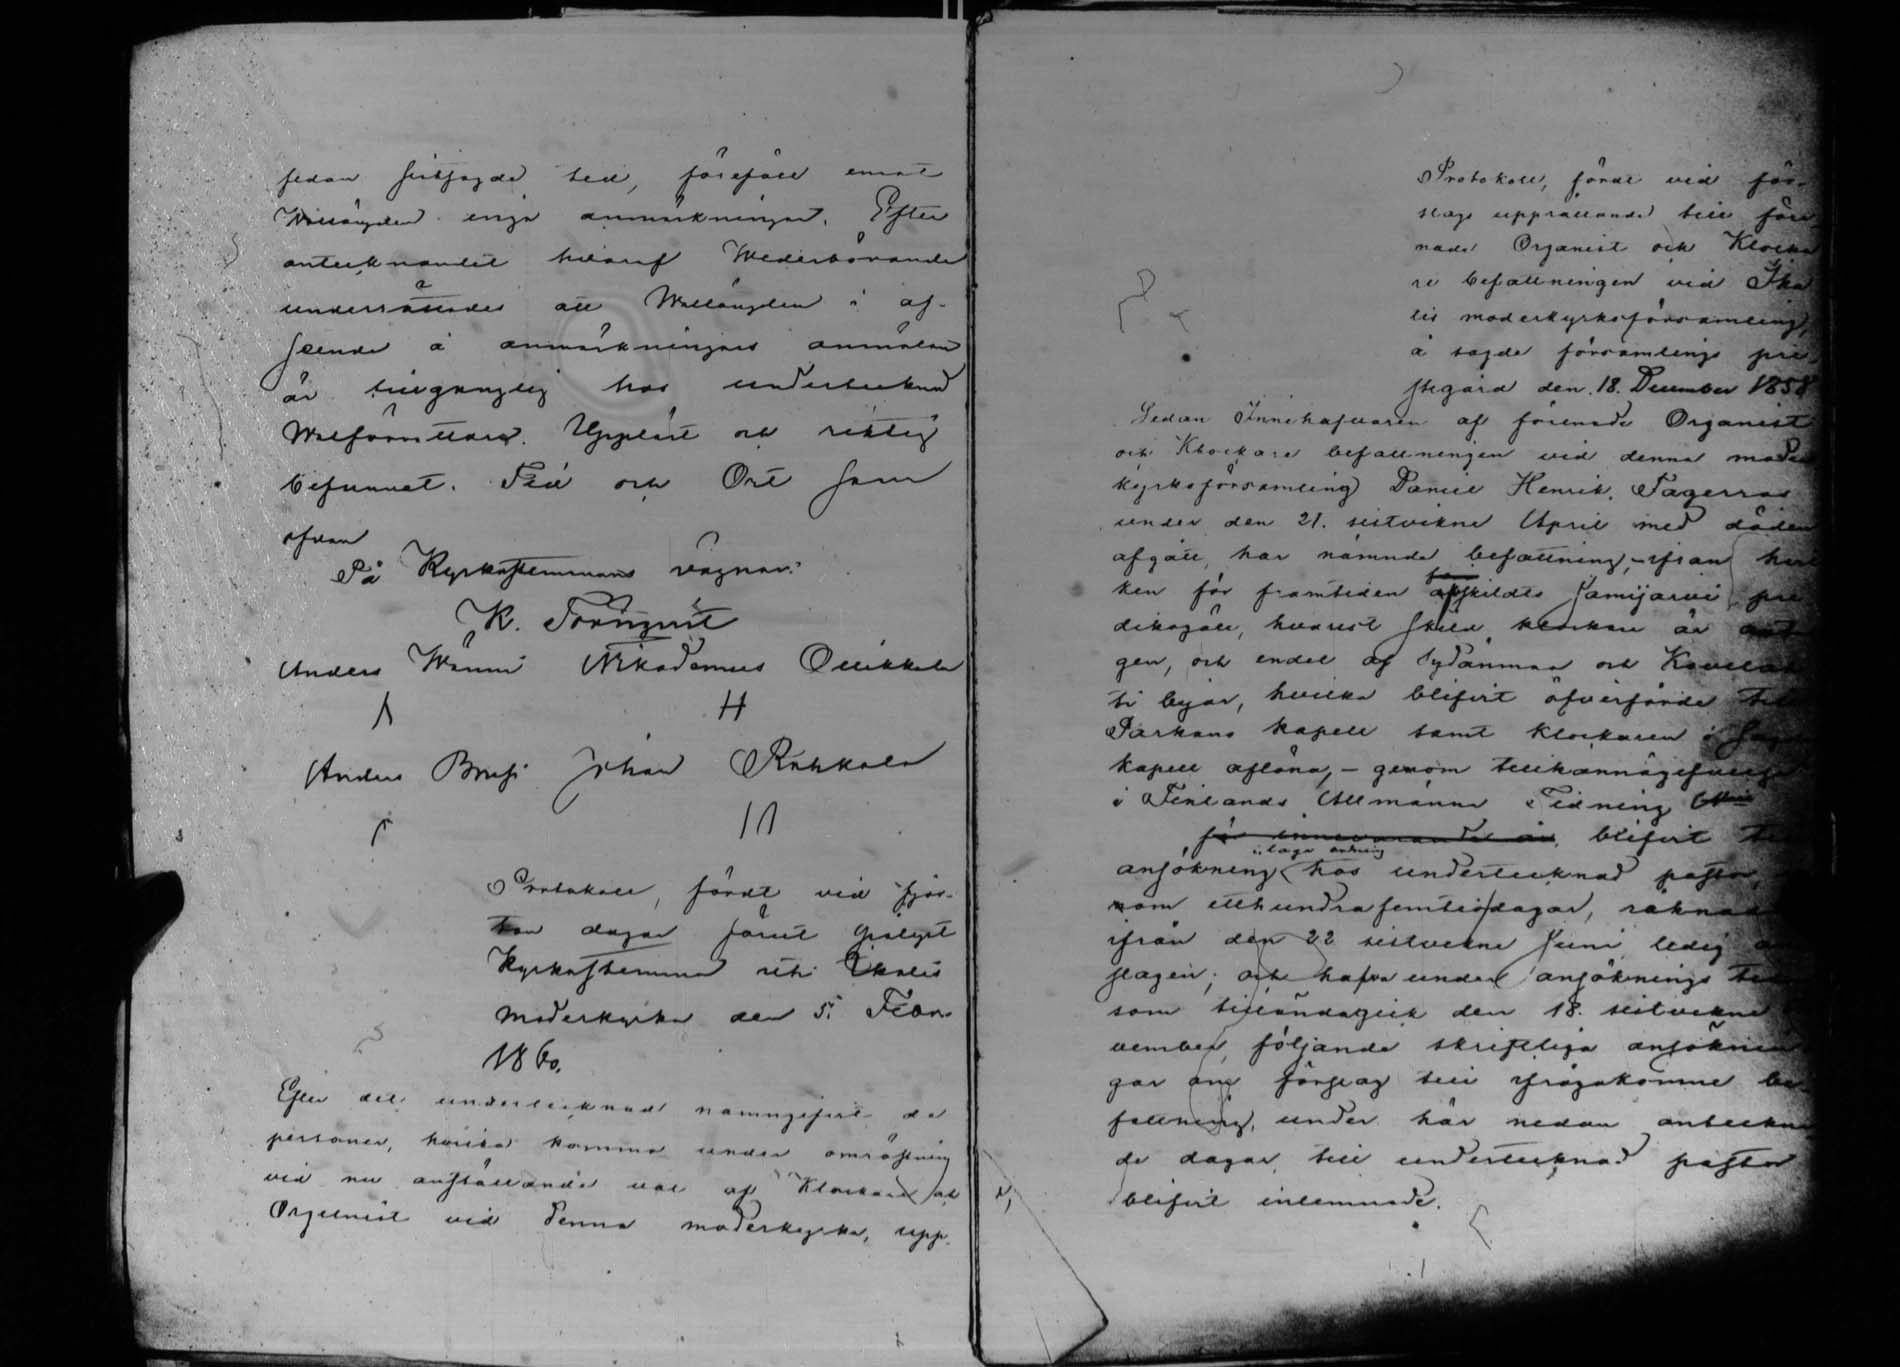 sedan sistsagde tid, föreföll emot
Wallängden inga anmärkningar. Efter
antecknandet häraf Wederbörande
underrättades att Wallängden i af-
seende å anmärkningars anmälan
är tillgänglig hos undertecknad
Walförrättare. Uppläst och riktig
befunnet. Tid och Ort som
ofvan
På Kyrkostemmans vägnar:
K. Törnqvist
Anders Wänni Nikodemus Ollikkala
H
Anders Johan Rahkola
Protokoll, fördt vid fjor-
ton dagar förut pålyst
Kyrkostemma uti Ikalis
moderkyrka den 5. Febr.
1860.
Efter det undertecknad namngifvit de
personer, hvilka komma under omröstning
vid nu anställande val af Klockare och
Organist vid denna moderkyrka, upp-
Protokoll, fördt vid för-
slags upprättande till före-
nade Organist och Klocka
re befattningen vid Ika
lis moderkyrkoförsamling,
å sagde församlings pre-
stgård den 18. December 1858
Sedan Innehafvaren af förenade Organist
och Klockare befattningen vid denna moder
kyrkoförsamling Daniel Henrik Fagerroos
under den 21. sistvikne April med döden
afgått, har nämnde befattning, ifrån hvil
ken för framtiden afskildts Jämijärvi pre
dikogäll, hvarest skild klockare är
gen, och endel af Sydänmaa och
ti byar, hvilka blifvit öfverförde till
Parkano kapell samt klockaren i
kapell aflöna, – genom tillkännagifvelse
i Finlands Allmänna Tidning
för innevarande år, blifvit
ansökning hos undertecknad pastor,
nom etthundrafemtio dagar, räknade
ifrån den 22 sistvikne Juni ledig
slagen; och hafva under ansöknings
som tilländagick den 18. sistvikne
vember, följande skriftliga ansöknin
gar om förslag till ifrågakomne be-
fattning, under här nedan anteckna
de dagar till undertecknad pastor
blifvit inlemnade.